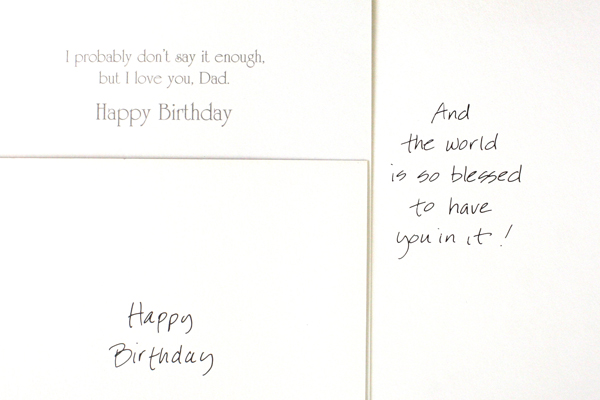 I probably don't say it enough,
but I love you, Dad.
Happy Birthday
And
the world
is so blessed
to have
you in it!
Happy
Birthday